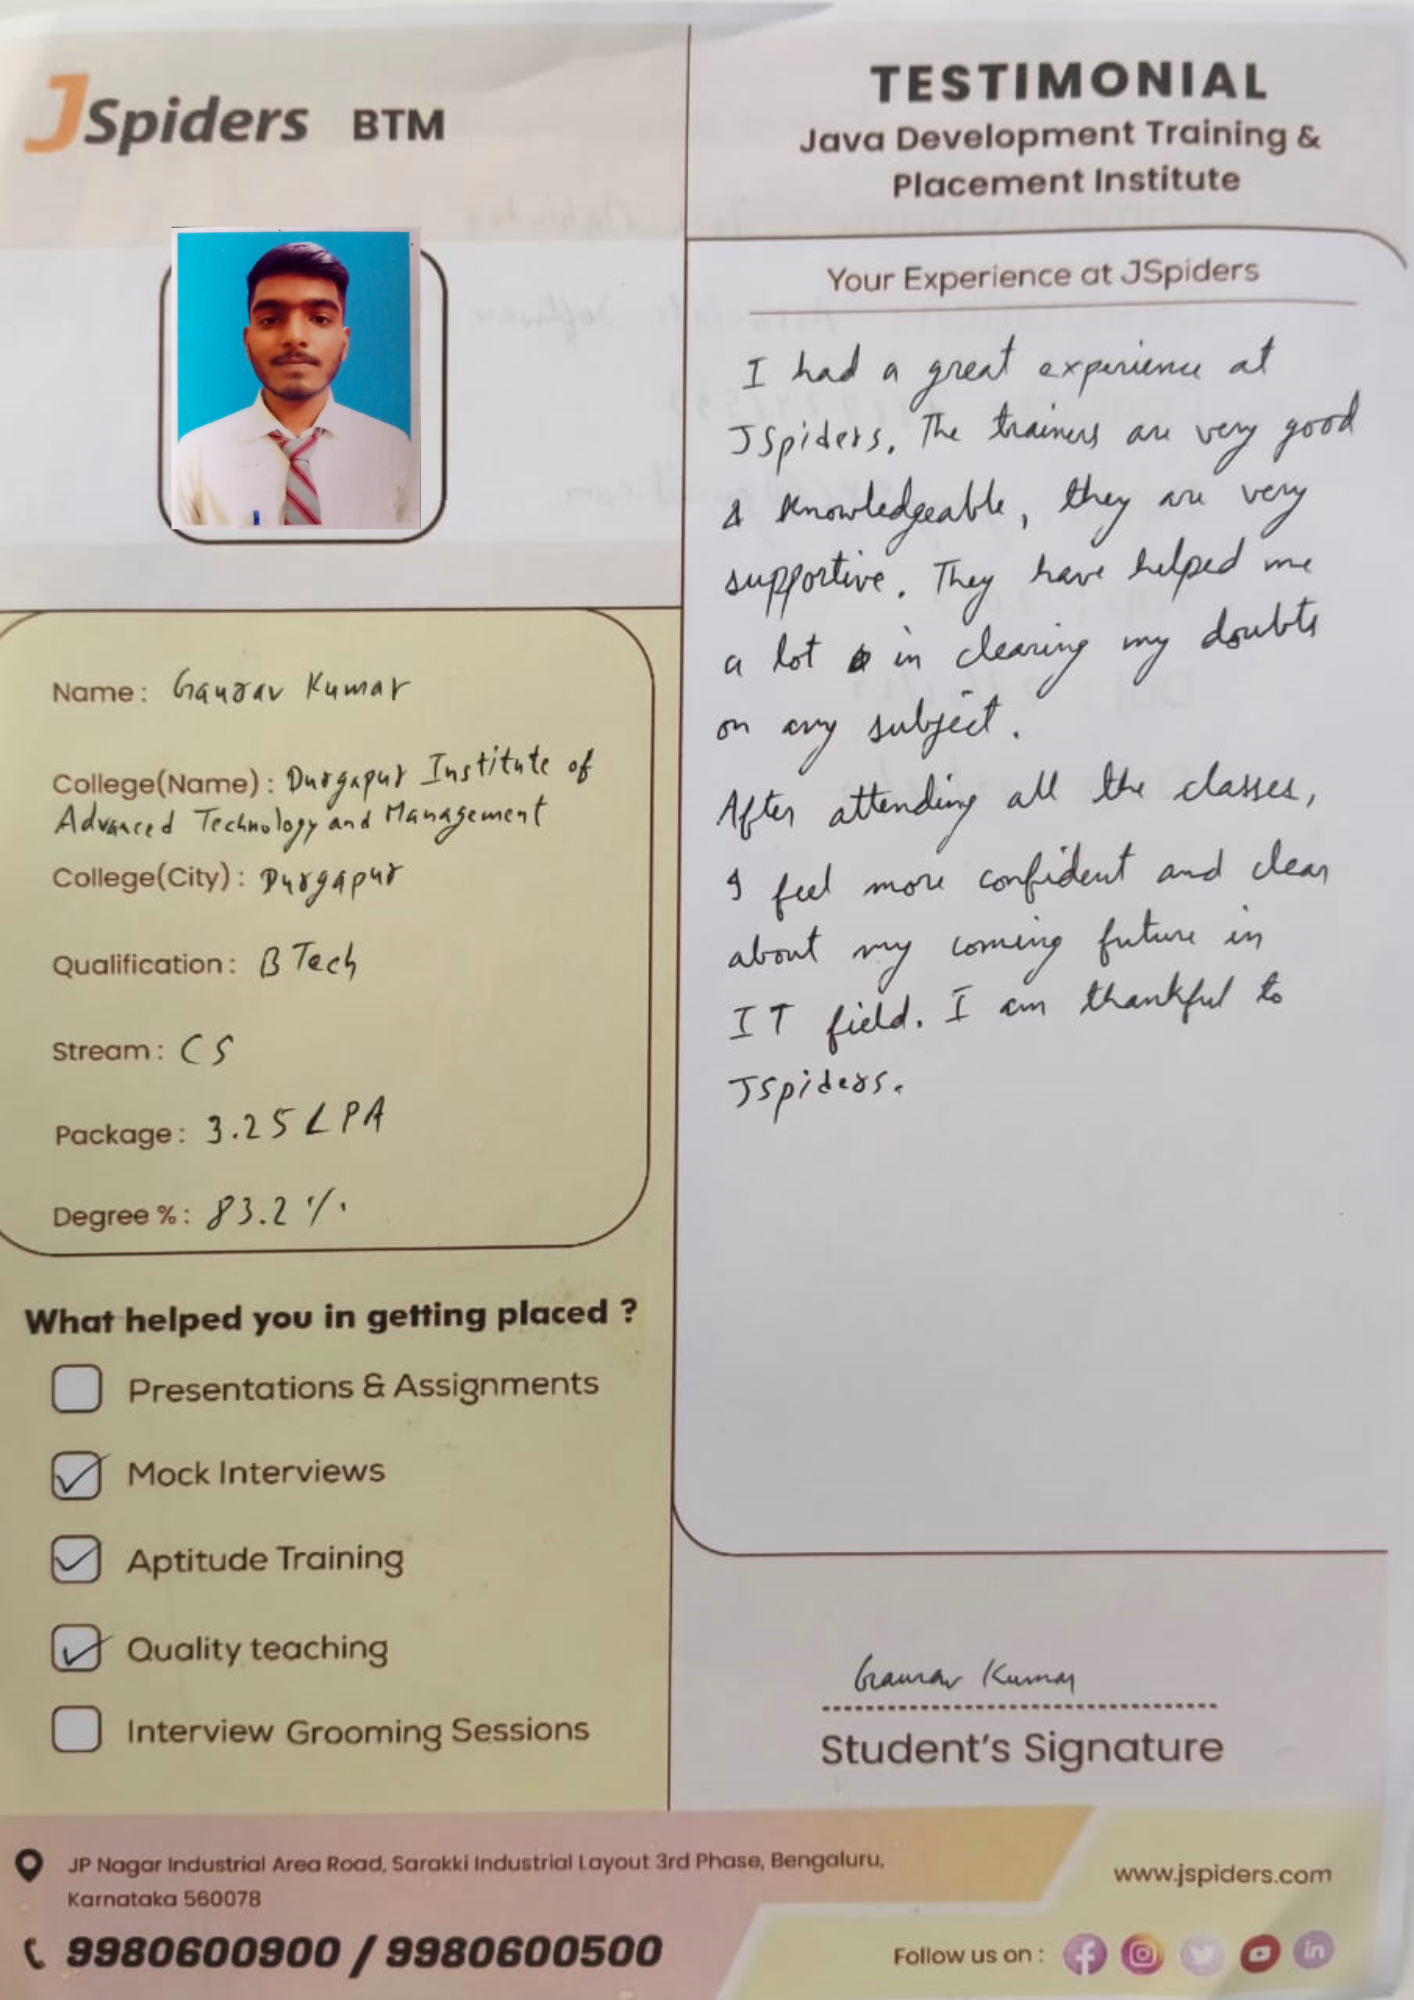 JSpiders BTM
TESTIMONIAL
Java Development Training &
Placement Institute
Your Experience at JSpiders
I had a great experience at
JSpiders. The trainers are very good
& knowledgeable, they are very
supportive. They have helped me
a lot in clearing my doubts
on any subject.
After attending all the classes,
I feel more confident and clear
about my coming future in
IT field. I am thankful to
JSpiders.
Name : Gaurav Kumar
College(Name) : Durgapur Institute of
Advanced Technology and Management
College(City) : Durgapur
Qualification : B Tech
Stream : CS
Package : 3.25 LPA
Degree % : 83.2 %
What helped you in getting placed ?
Presentations & Assignments
Mock Interviews
Aptitude Training
Quality teaching
Interview Grooming Sessions
Gaurav Kumar
Student's Signature
JP Nagar Industrial Area Road, Sarakki Industrial Layout 3rd Phase, Bengaluru,
Karnataka 560078
9980600900 / 9980600500
www.jspiders.com
Follow us on :